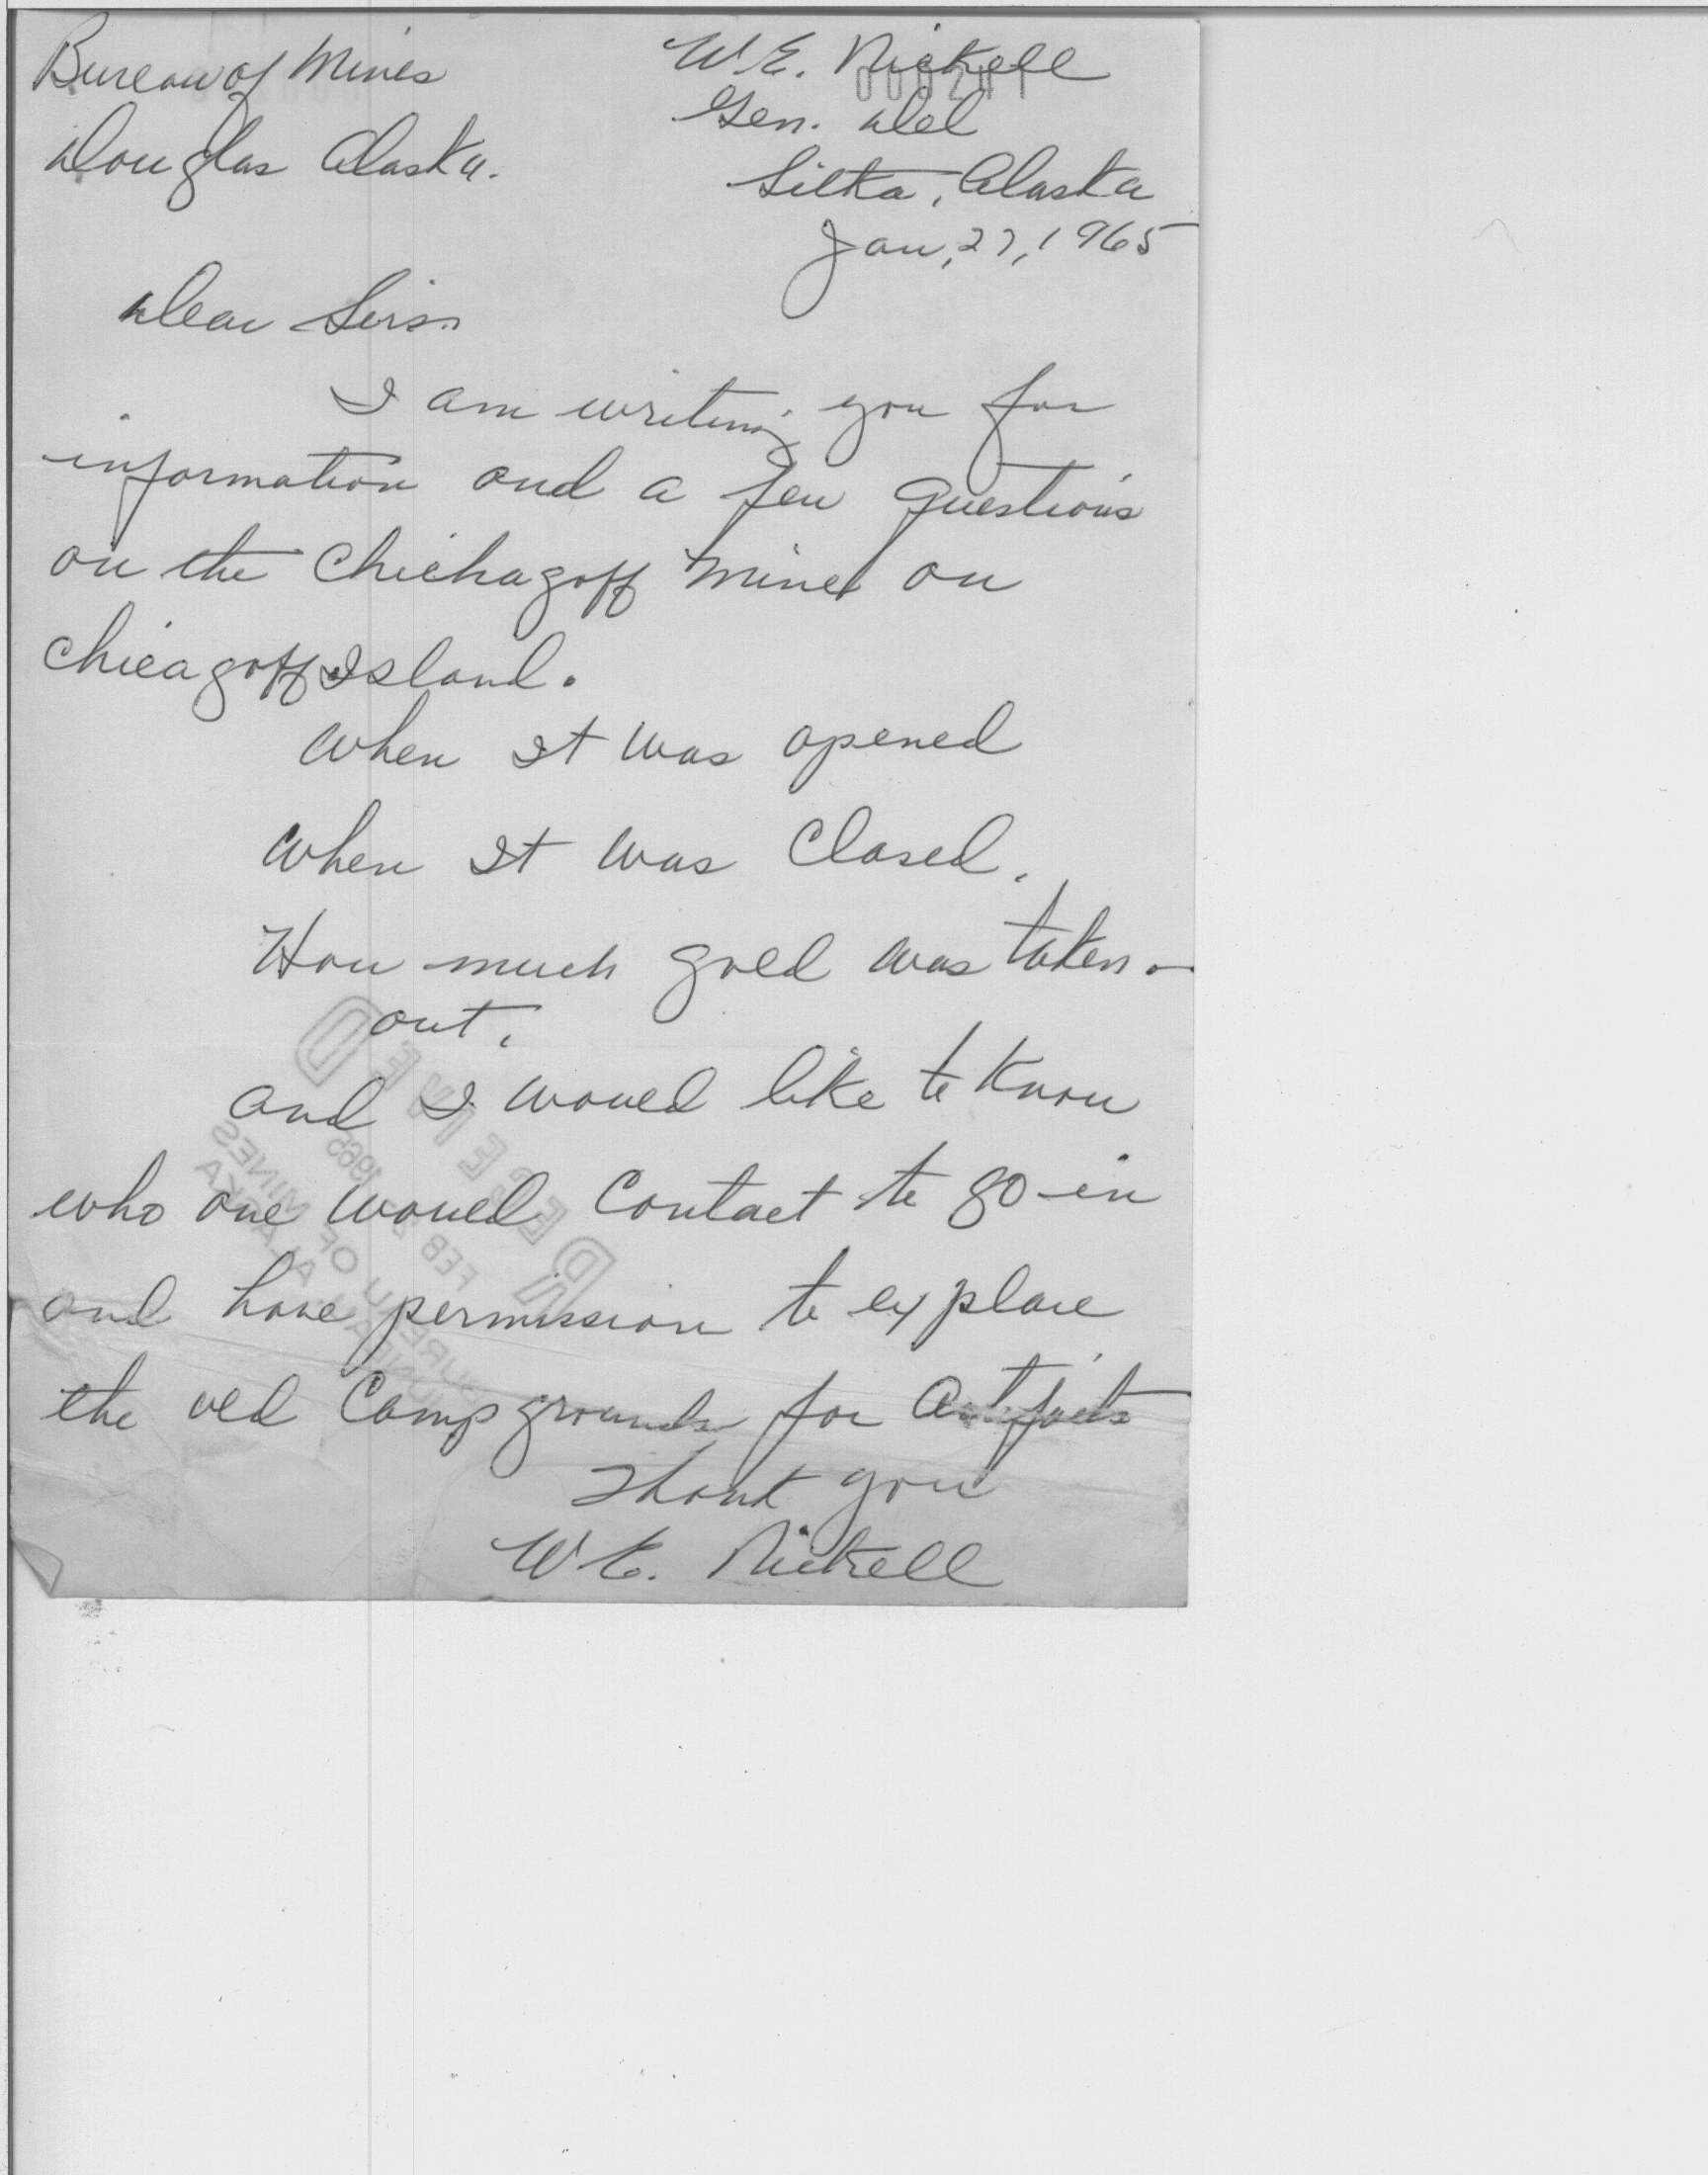 Bureau of Mines
Douglas Alaska.
W. E. Nickell
Gen. Del
Sitka, Alaska
Jan, 27, 1965
Dear Sirs.
I am writing you for
information and a few question's
on the Chichagoff Mine on
Chicagoff Island.
When It was opened
When It was Closed.
How much gold was taken
out.
and I would like to know
who one would Contact to go in
and have permission to explore
the old Camp grounds for Artifacts
Thank you
W. E. Nickell
RECEIVED
FEB 1965
BUREAU OF MINES
JUNEAU, ALASKA